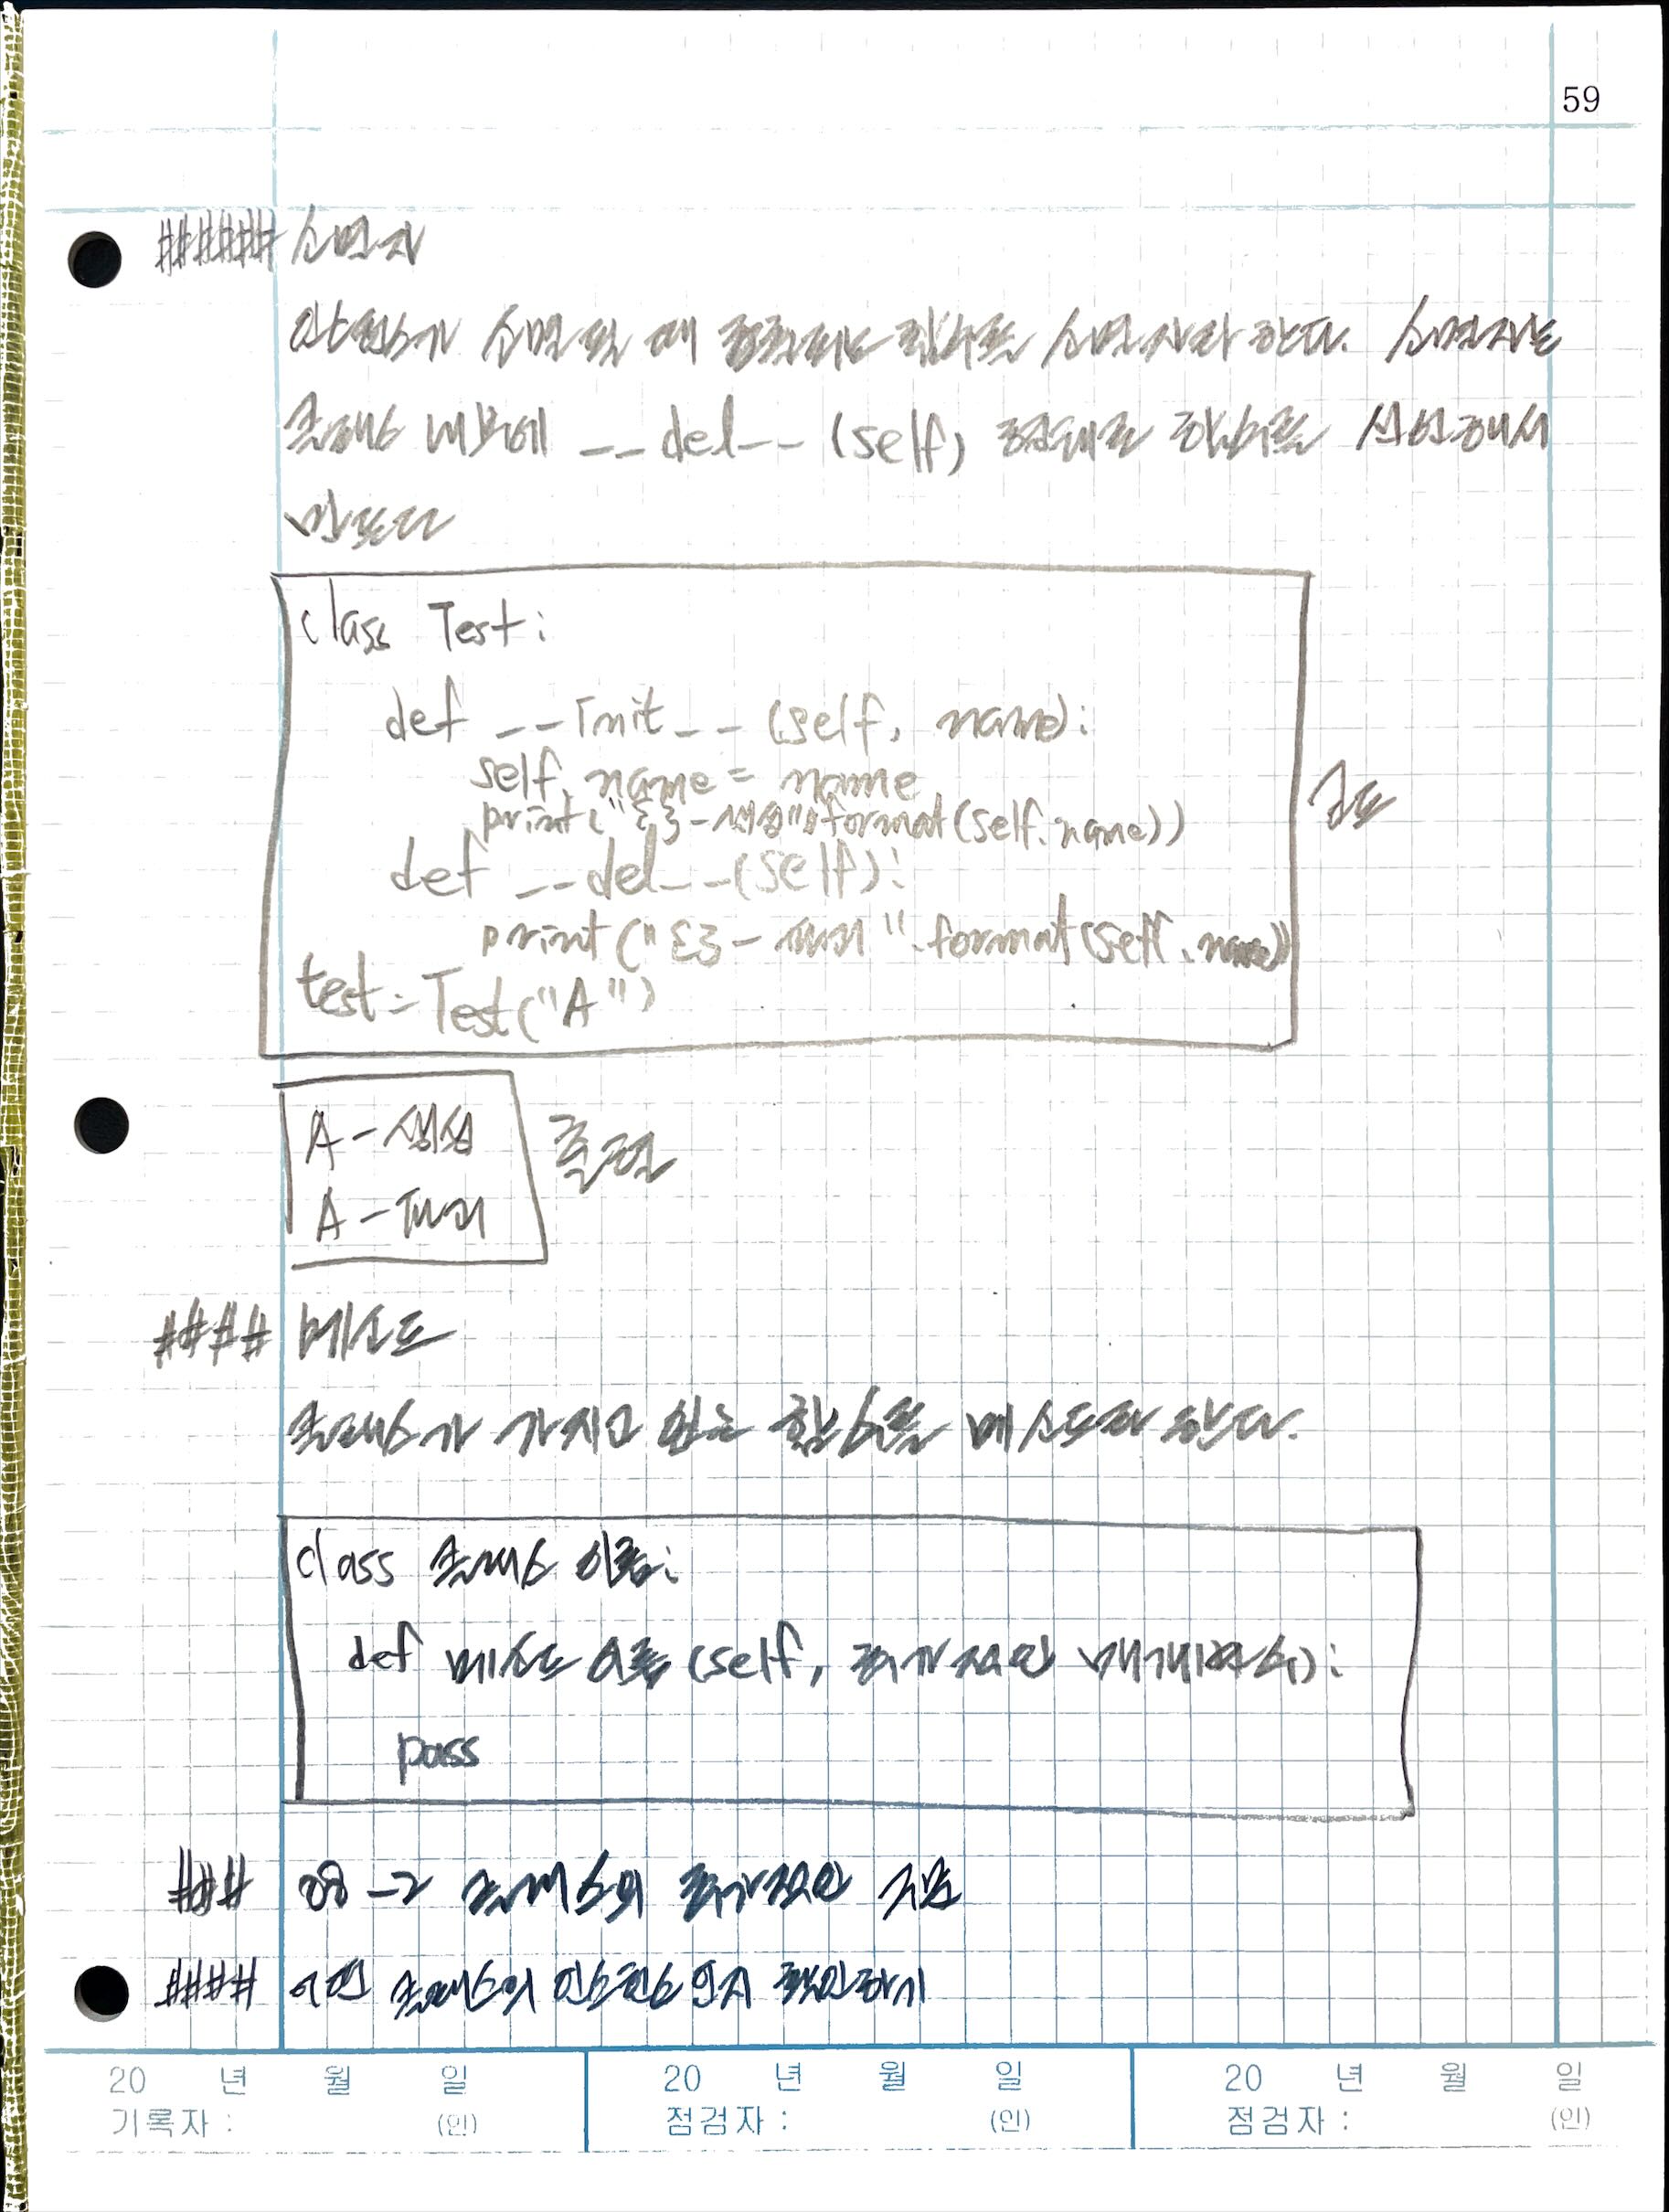 59
###### 소멸자
인스턴스가 소멸될 때 호출되는 함수를 소멸자라 한다. 소멸자는
클래스 내부에 __del__(self) 형태로 함수를 선언해서
만든다
class Test:
def __init__(self, name):
self.name = name
print("{}-생성".format(self.name))
def __del__(self):
print("{}-파괴".format(self.name))
test = Test("A")
코드
A-생성
A-파괴
출력
#### 메소드
클래스가 가지고 있는 함수를 메소드라 한다.
class 클래스 이름:
def 메소드 이름(self, 추가적인 매개변수):
pass
### 08-2 클래스의 추가적인 구문
#### 어떤 클래스의 인스턴스인지 확인하기
20 년 월 일 20 년 월 일 20 년 월 일
기록자 : (인) 점검자 : (인) 점검자 : (인)